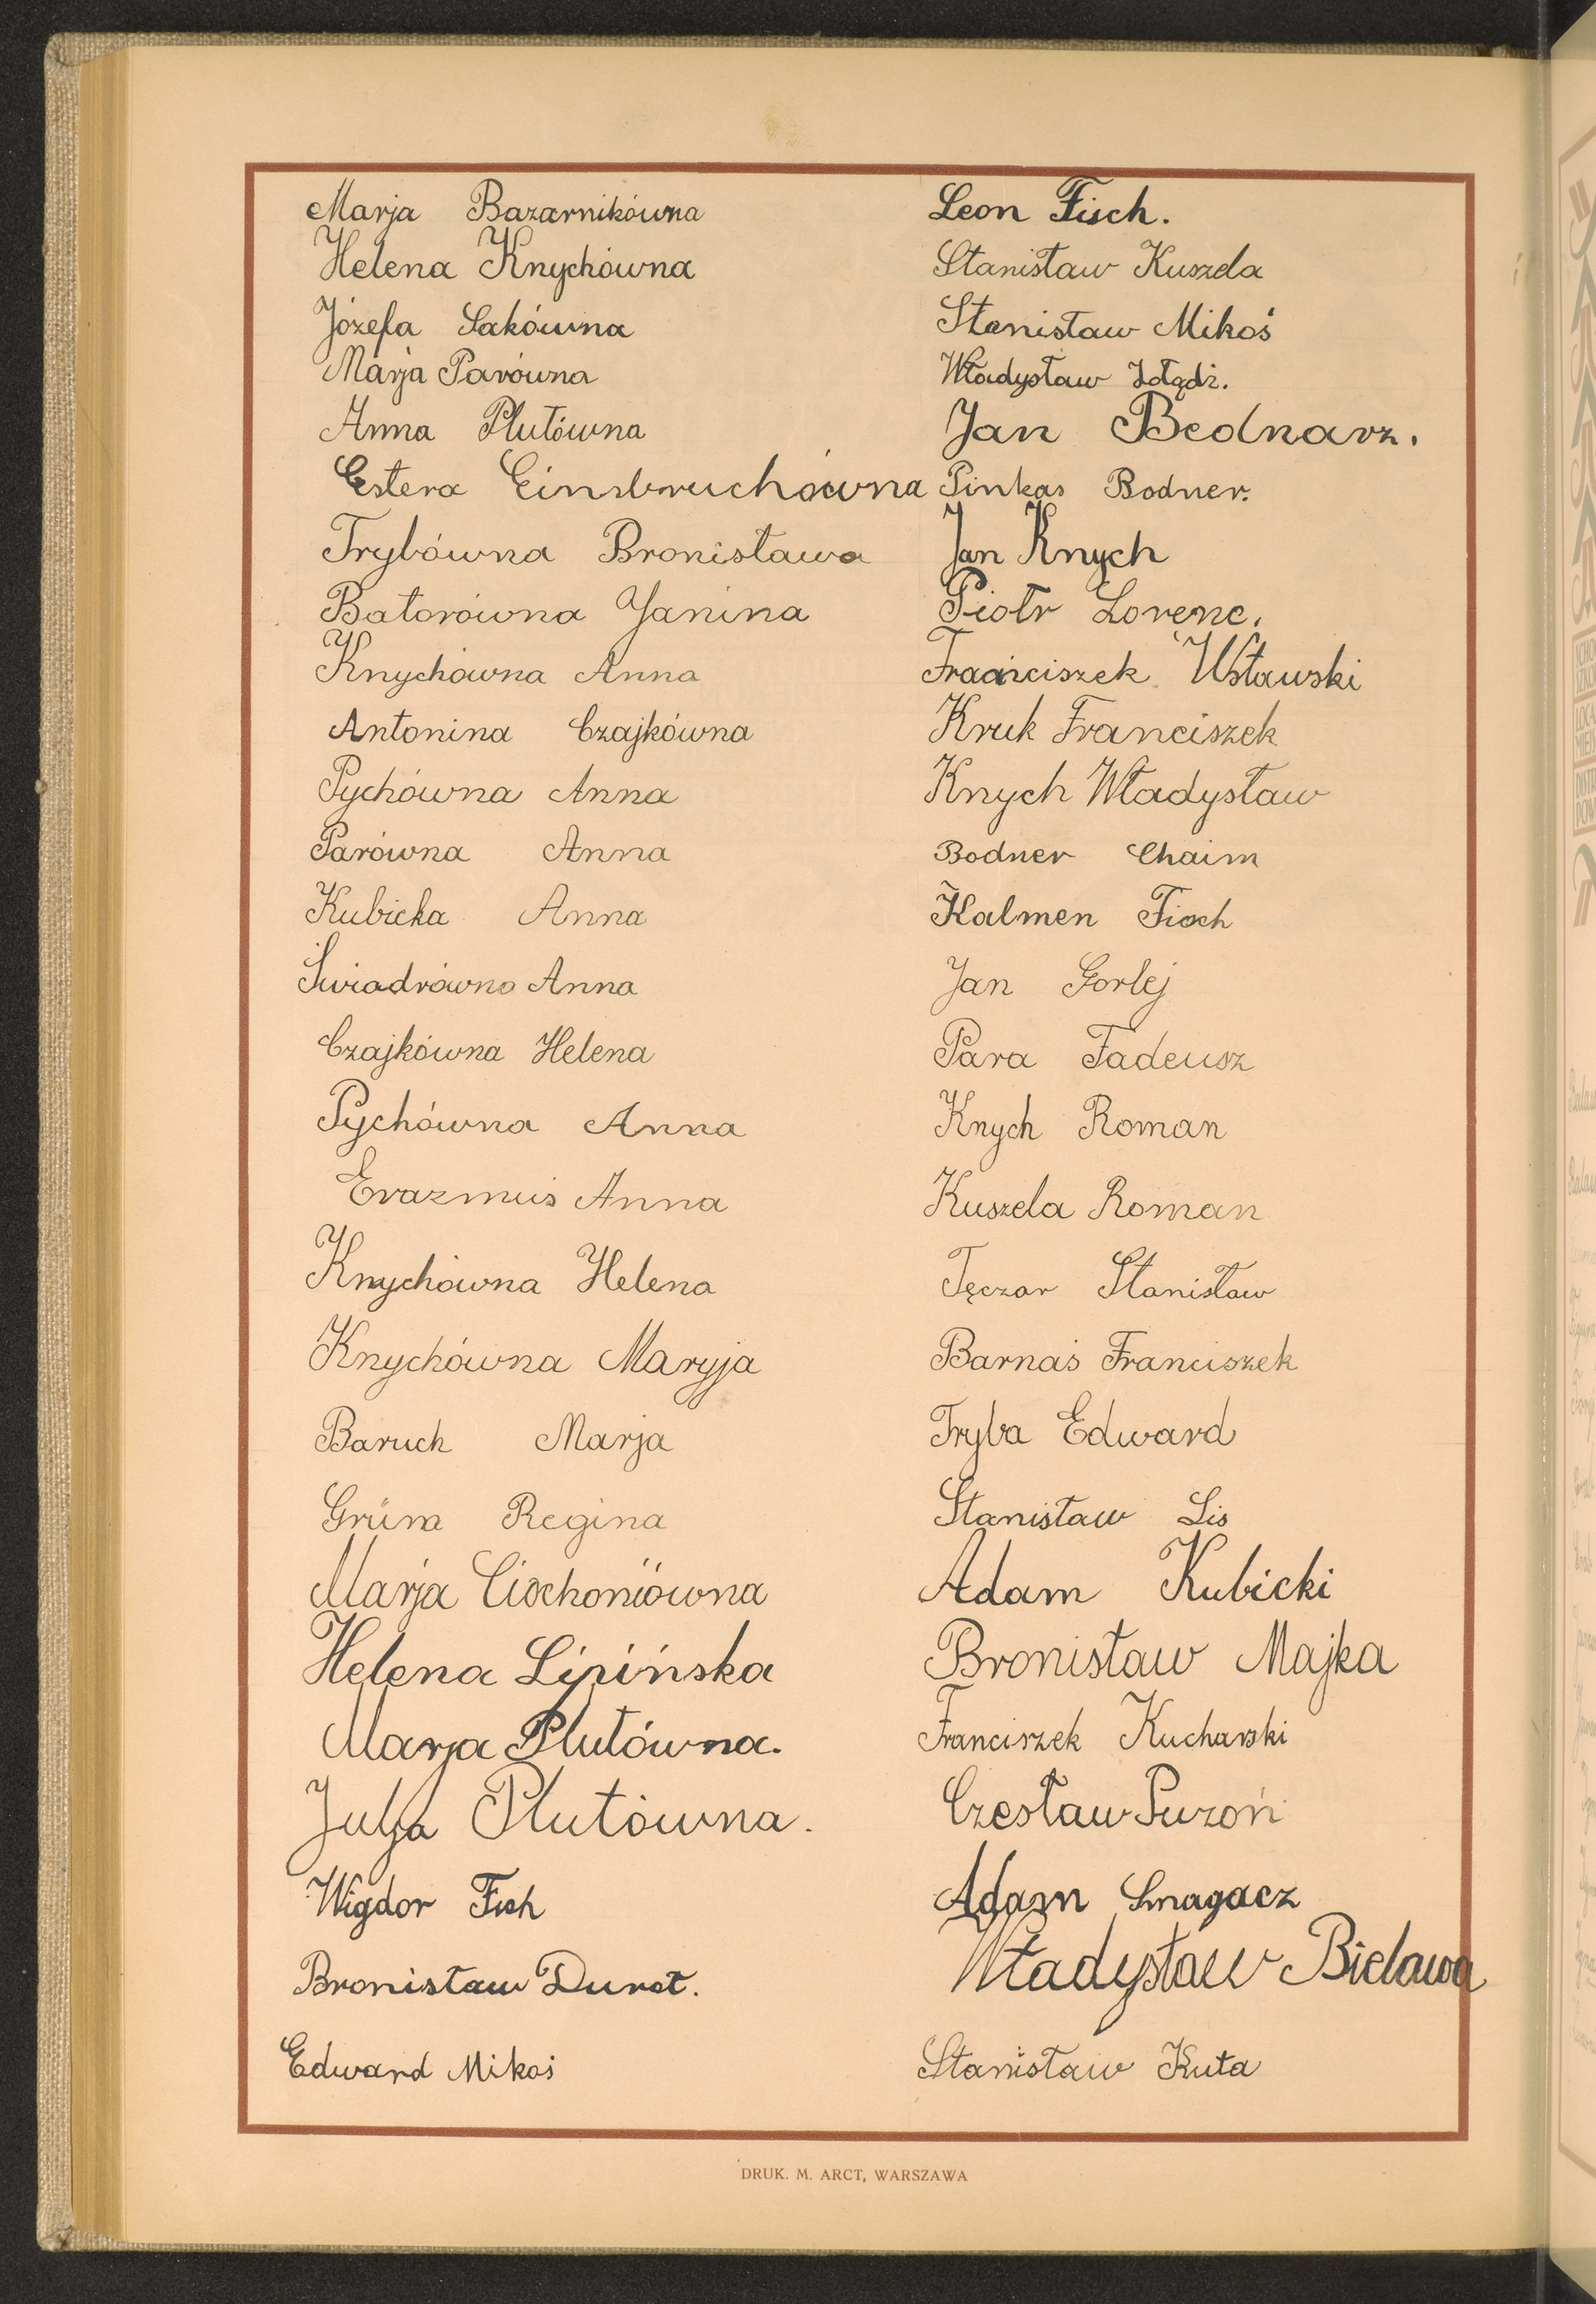 Marja Bazarnikówna
Helena Knychówna
Józefa Sakówna
Marja Parówna
Anna Plutówna
Estera Einsbruchówna
Trybówna Bronisława
Batorówna Janina
Knychówna Anna
Antonina Czajkówna
Pychówna Anna
Parówna Anna
Kubicka Anna
Świadrówna Anna
Czajkówna Helena
Pychówna Anna
Erazmus Anna
Knychówna Helena
Knychówna Maryja
Baruch Marja
Grüna Regina
Marja Cichoniówna
Helena Lipińska
Marja Plutówna.
Julja Plutówna.
Wigdor Fisch
Bronisław Durat.
Edward Mikoś
Leon Fisch.
Stanisław Kuszela
Stanisław Mikoś
Władysław Żołądź.
Jan Bednarz.
Pinkas Bodner.
Jan Knych
Piotr Lorenc.
Franciszek Wsławski
Kruk Franciszek
Knych Władysław
Bodner Chaim
Kalmen Fisch
Jan Gorlej
Para Tadeusz
Knych Roman
Kuszela Roman
Tęczar Stanisław
Barnaś Franciszek
Tryba Edward
Stanisław Lis
Adam Kubicki
Bronisław Majka
Franciszek Kucharski
Czesław Puzoń
Adam Smagacz
Władysław Bielawa
Stanisław Kuta
DRUK. M. ARCT, WARSZAWA